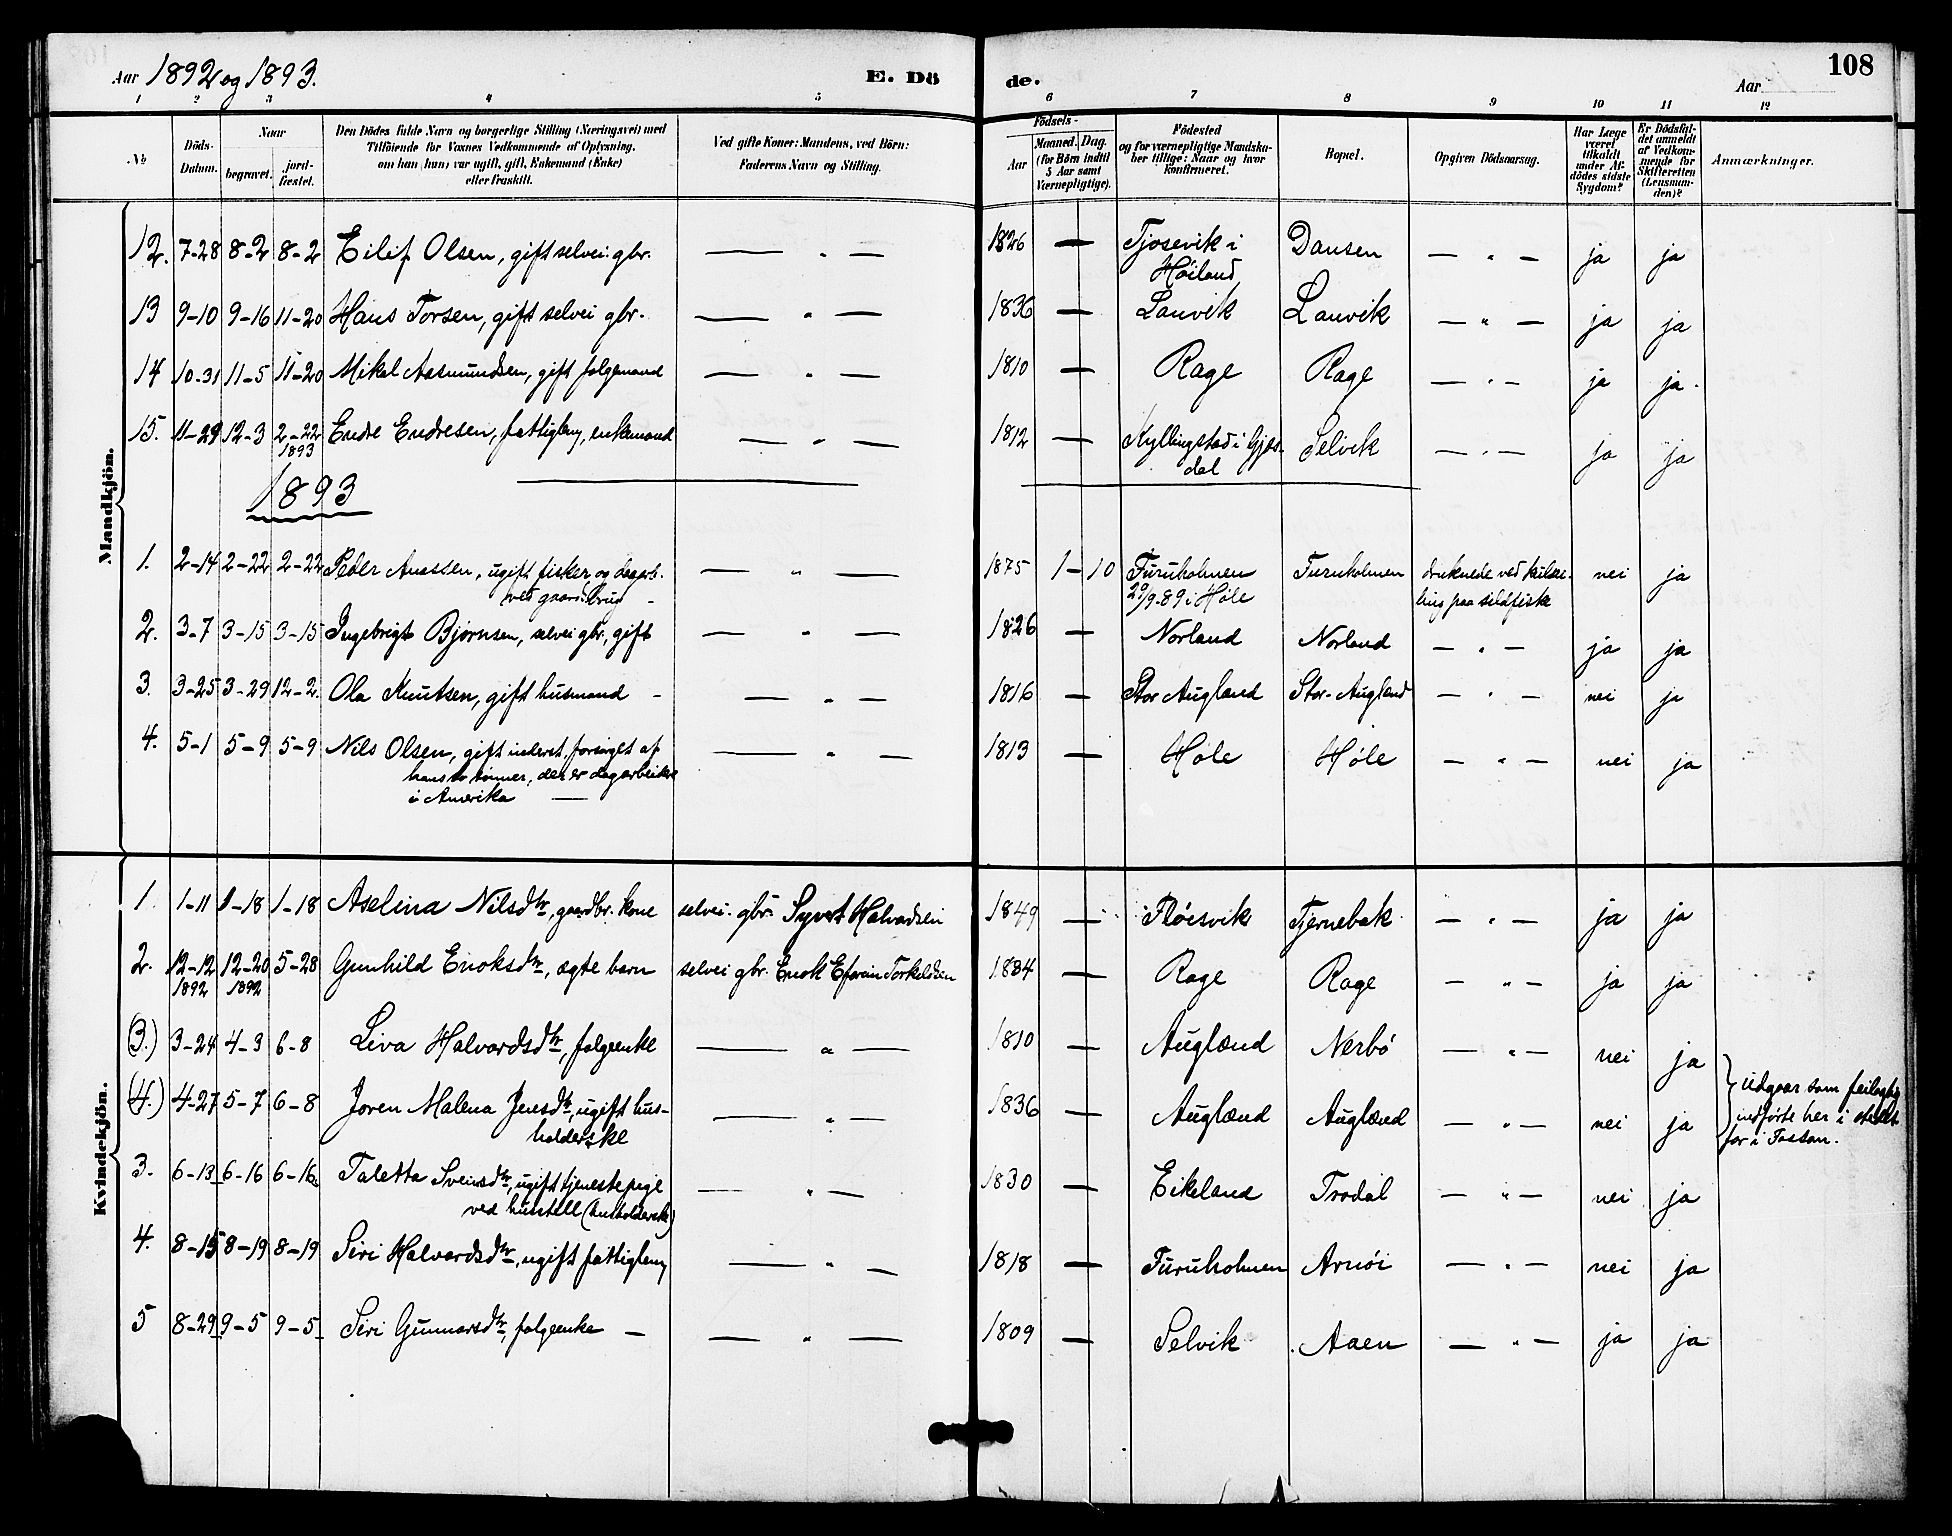 Aar 1892 og 1893. E. Dö de. Aar 108
1 2 3 4 5 6 7 8 9 10 11 12
№ Döds-Datum. Naar begravet. jordfæstet. Den Dödes fulde Navn og borgerlige Stilling (Næringsvei) med Tilföiende for Voxnes Vedkommende af Oplysning, om han (hun) var ugift, gift, Enkemand (Enke) eller fraskilt. Ved gifte Koner: Mandens, ved Börn: Faderens Navn og Stilling. Födsels- Aar Maaned. Dag. (for Börn indtil 5 Aar samt Værnepligtige). Födested og for værnepligtige Mandskaber tillige: Naar og hvor konfirmeret. Bopæl. Opgiven Dödsaarsag. Har Læge været tilkaldt under Afdödes sidste Sygdom? Er Dödsfaldet anmeldt af Vedkommende for Skifteretten (Lensmanden)? Anmærkninger.
Mandkjön.
12. 7-28 8-2 8-2 Eilif Olsen, gift selvei. gbr. — " — 1826 — Tjosevik i Dansen — " — ja ja
Höiland
13 9-10 9-16 11-20 Hans Torsen, gift selvei gbr. — " — 1836 — Lauvik Lauvik — " — ja ja
14 10-31 11-5 11-20 Mikal Aasmundsen, gift folgemand — " — 1810 — Rage Rage — " — ja ja.
15. 11-29 12-3 2-22 Endre Endresen, fattiglem, enkemand — " — 1812 — Kyllingstad i Gjes- Selvik — " — ja ja
1893 dal
1893
1. 2-14 2-22 2-22 Peder Anassen, ugift fisker og dagarb. — " — 1875 1 - 10 Furuholmen Furuholmen druknede ved kulsei- nei ja
ved gaardsbrug — 29/9-89 i Höle ling paa sildfiske
2. 3-7 3-15 3-15 Ingebrigt Björnsen, selvei gbr, gift — " — 1826 — Norland Norland — " — ja ja
3. 3-25 3-29 12-2 Ola Knutsen, gift husmand — — " — 1816 — Stor Augland Stor-Augland — " — nei ja
4. 5-1 5-9 5-9 Nils Olsen, gift inderst, forsörget af — " — 1813 — Höle Höle — " — nei ja
hans sönner, der er dagarbeidere
i Amerika —
Kvindekjön.
1. 1-11 1-18 1-18 Aselina Nilsdtr, gaardbr. kone selvei. gbr. Syvert Halvadsen 1849 — Flöisvik Tjernebak — " — ja ja
2. 12-12 12-20 5-28 Gunhild Enoksdtr, ægte barn selvei gbr. Enok Efraim Torkeldsen 1884 — Rage Rage — " — ja ja
1892 1892
(3.) 3-24 4-3 6-8 Liva Halvardsdtr, folgeenke — " — 1810 — Augland Nerbö — " — nei ja
(4.) 4-27 5-7 6-8 Joren Malena Jensdtr, ugift hus- — " — 1836 — Augland Augland — " — nei ja } udgaar som feilagtig
holderske indförte her i stedet
for i Fossan.
3. 6-13 6-16 6-16 Taletta Sveinsdtr, ugift tjenestepige — " — 1830 — Eikeland Trodal — " — nei ja
ved husstell (husholderske)
4. 8-15 8-19 8-19 Siri Halvardsdtr, ugift fattiglem — " — 1818 — Furuholmen Arnöi — " — nei ja
5 8-29 9-5 9-5 Siri Gunnarsdtr, folgeenke — — " — 1809 — Selvik Aaen — " — ja ja